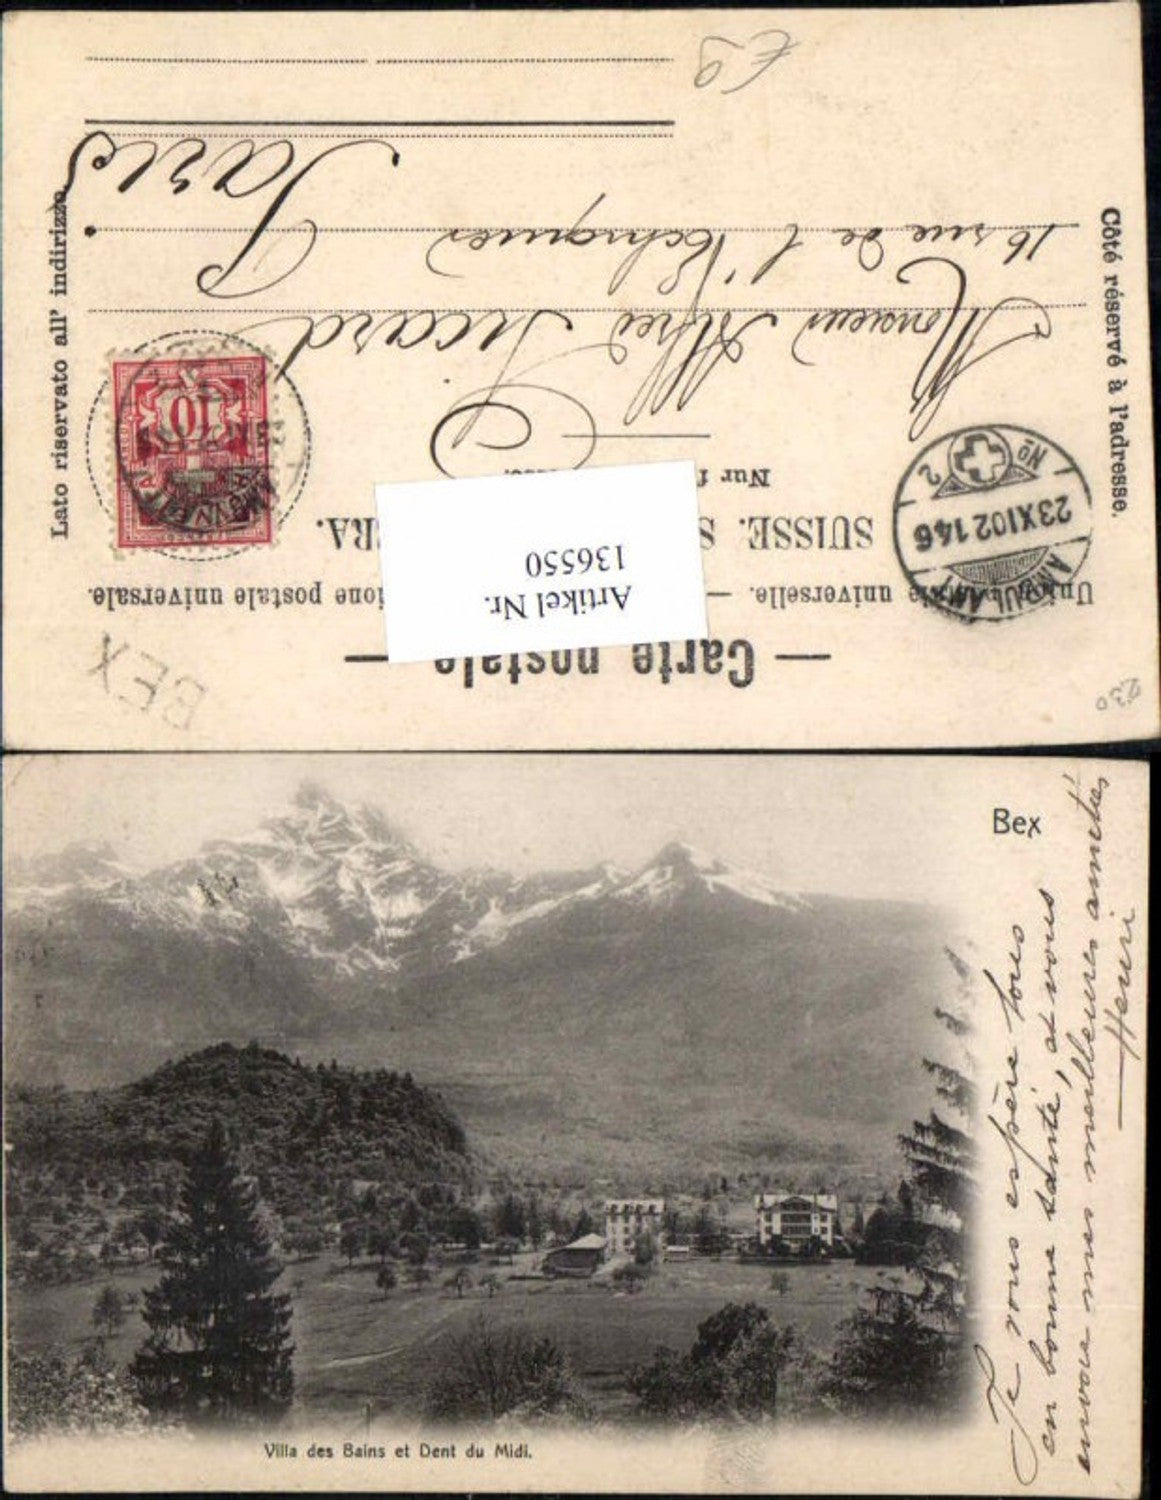 — Carte postale —
Union postale universelle. — ione postale universale.
SUISSE. S RA.
Nur f
Côté réservé à l'adresse.
Lato riservato all' indirizzo.
Artikel Nr.
136550
AMBULANT
23 XI 02 14 6
No 2
10
Monsieur Alfred Sicard
16 rue de l'Echiquier
Paris
BEX
230
€9
Bex
Je vous espère tous
en bonne santé, et vous
envoie mes meilleures amitiés
Henri
Villa des Bains et Dent du Midi.